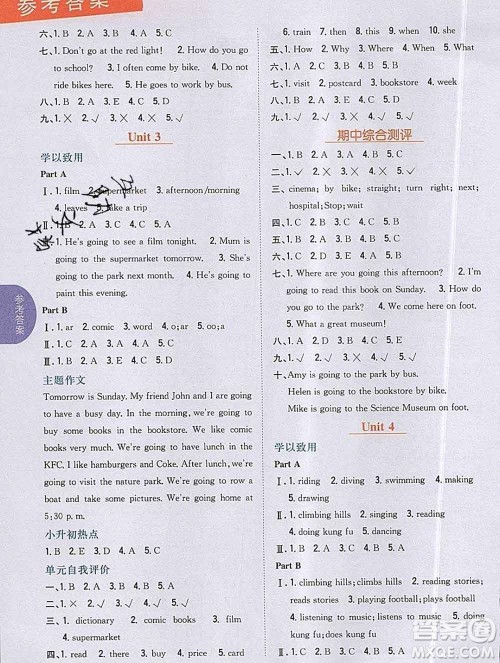 参考答案
六、1. B 2. A 3. C 4. D
七、1. Don't go at the red light! 2. How do you go
to school? 3. I often come by bike. 4. Do not
ride bikes here. 5. He goes to work by bus.
八、1. B 2. A 3. E 4. C 5. D
九、1. × 2. √ 3. × 4. × 5. √
Unit 3
学以致用
Part A
Ⅰ. 1. film 2. supermarket 3. afternoon/morning
4. leaves 5. take a trip
Ⅱ. 1. B 2. A 3. C 4. C 5. A
1. He's going to see a film tonight. 2. Mum is
going to the supermarket tomorrow. 3. She's
going to the park next month. 4. He's going to
paint this evening.
Part B
Ⅰ. 1. ar 2. comic 3. word 4. or 5. oo; a
Ⅱ. 1. C 2. A 3. A 4. B 5. C
主题作文
Tomorrow is Sunday. My friend John and I have
to have a busy day. In the morning, we're going
to buy some books in the bookstore. We like comic
books very much. Then we're going to have lunch in the
KFC. I like hamburgers and Coke. After lunch, we're
going to visit the nature park. We're going to row a
boat and take some pictures. We're going to home at
5:30 p. m.
小升初热点
1. B 2. E 3. D 4. A 5. C
单元自我评价
一、1. √ 2. × 3. √ 4. √ 5. √
二、1. D 2. B 3. A 4. E 5. C
三、1. dictionary 2. comic 3. film
4. supermarket
四、1. B 2. B 3. A 4. A
6. train 7. then 8. near 9. for 10. in
五、1. How 2. Why 3. Where 4. What 5. When
六、1. B 2. D 3. A 4. C 5. E
七、1. visit 2. postcard 3. bookstore 4. week
八、1. E 2. C 3. A 4. D 5. B
九、1. × 2. √ 3. × 4. √
期中综合测评
一、1. C 2. A 3. B 4. D
二、1. √ 2. √ 3. × 4. × 5. √
三、cinema; by bike; straight; turn right; next;
hospital; Stop; wait
四、1. B 2. C 3. D 4. E 5. A
五、1. B 2. A 3. C 4. A 5. B
六、1. D 2. A 3. B 4. E 5. C
七、1. Where are you going this afternoon? 2. I'm
going to read this book on Sunday. 3. How do
you go to the park? 4. We come here on foot.
5. What a great museum!
八、1. B 2. D 3. A 4. C
九、1. √ 2. × 3. × 4. √ 5. √
十、Amy is going to the park by bus.
Helen is going to the bookstore by bike.
Mike is going to the Science Museum on foot.
Unit 4
学以致用
Part A
Ⅰ. 1. riding 2. diving 3. swimming 4. making
5. drawing
Ⅱ. 1. climbing hills 2. singing 3. making food
4. doing kung fu 5. dancing
Ⅲ. 1. B 2. A 3. C 4. E 5. D
Part B
Ⅰ. 1. climbing hills; climbs hills 2. reading stories;
reads stories 3. playing football; plays football
4. listening to music; listens to music 5. doing
kung fu; does kung fu
答案圈
MXQE.COM